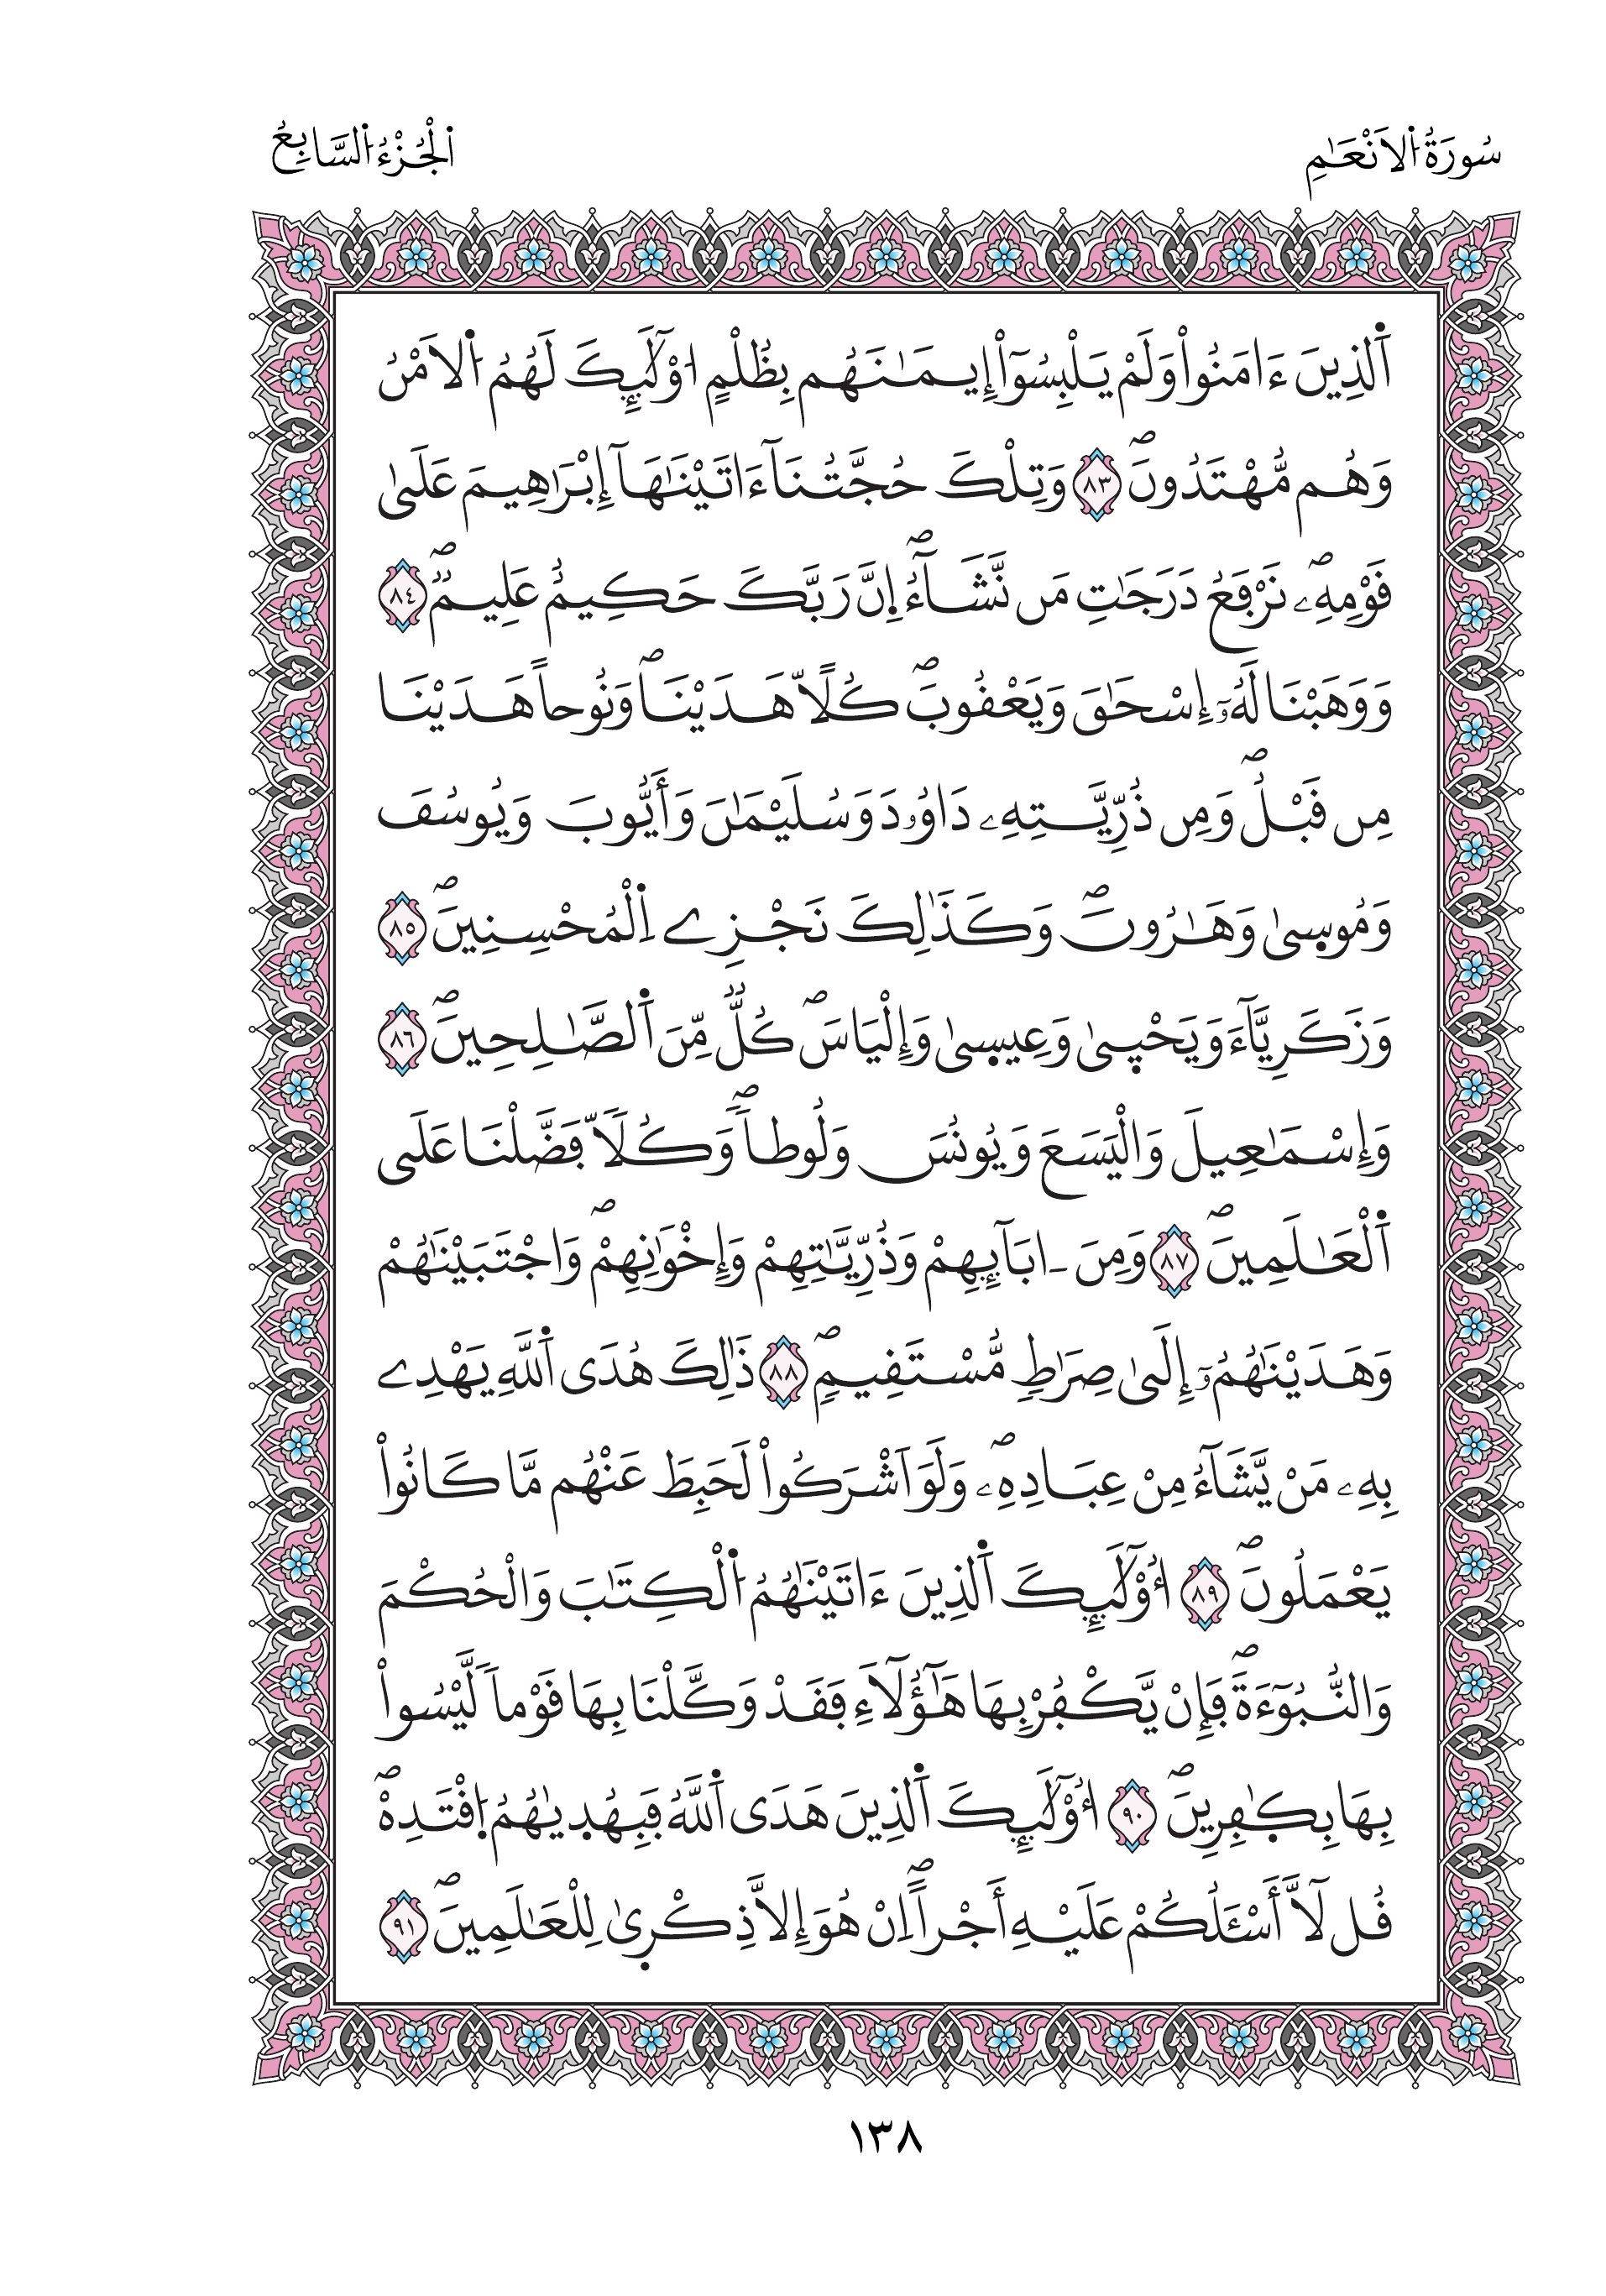 سُورَةُ اُ۬لَانْعَٰمِ
اَ۬لْجُزْءُ اُ۬لسَّابِعُ
اَ۬لذِينَ ءَامَنُواْ وَلَمْ يَلْبِسُوٓاْ إِيمَٰنَهُم بِظُلْمٍ ا۟وْلَٰٓئِكَ لَهُمُ اُ۬لَامْنُ
وَهُم مُّهْتَدُونَۖ ٨٣ وَتِلْكَ حُجَّتُنَآ ءَاتَيْنَٰهَآ إِبْرَٰهِيمَ عَلَىٰ
قَوْمِهِۦۖ نَرْفَعُ دَرَجَٰتِ مَن نَّشَآءُۖ اِ۪نَّ رَبَّكَ حَكِيمٌ عَلِيمٞۖ ٨٤
وَوَهَبْنَا لَهُۥٓ إِسْحَٰقَ وَيَعْقُوبَۖ كُلّاً هَدَيْنَاۖ وَنُوحاً هَدَيْنَا
مِن قَبْلُۖ وَمِن ذُرِّيَّتِهِۦ دَاوُۥدَ وَسُلَيْمَٰنَ وَأَيُّوبَ وَيُوسُفَ
وَمُوس۪يٰ وَهَٰرُونَۖ وَكَذَٰلِكَ نَجْزِے اِ۬لْمُحْسِنِينَۖ ٨٥
وَزَكَرِيَّآءَ وَيَحْي۪يٰ وَعِيس۪يٰ وَإِلْيَاسَۖ كُلّٞ مِّنَ اَ۬لصَّٰلِحِينَۖ ٨٦
وَإِسْمَٰعِيلَ وَالْيَسَعَ وَيُونُسَ وَلُوطاٗۖ وَكُلّاٗ فَضَّلْنَا عَلَى
اَ۬لْعَٰلَمِينَۖ ٨٧ وَمِنَ ـ ابَآئِهِمْ وَذُرِّيَّٰتِهِمْ وَإِخْوَٰنِهِمْۖ وَاجْتَبَيْنَٰهُمْ
وَهَدَيْنَٰهُمُۥٓ إِلَىٰ صِرَٰطٍ مُّسْتَقِيمٍۖ ٨٨ ذَٰلِكَ هُدَى اَ۬للَّهِ يَهْدِے
بِهِۦ مَنْ يَّشَآءُ مِنْ عِبَادِهِۦۖ وَلَوَ اَشْرَكُواْ لَحَبِطَ عَنْهُم مَّا كَانُواْ
يَعْمَلُونَۖ ٨٩ ا۟وْلَٰٓئِكَ اَ۬لذِينَ ءَاتَيْنَٰهُمُ اُ۬لْكِتَٰبَ وَالْحُكْمَ
وَالنُّبُوٓءَةَۖ فَإِنْ يَّكْفُرْ بِهَا هَٰٓؤُلَآءِ فَقَدْ وَكَّلْنَا بِهَا قَوْماٗ لَّيْسُواْ
بِهَا بِكٰ۪فِرِينَۖ ٩٠ ا۟وْلَٰٓئِكَ اَ۬لذِينَ هَدَى اَ۬للَّهُ فَبِهُد۪يٰهُمُ اُ۪قْتَدِهْۖ
قُل لَّآ أَسْـَٔلُكُمْ عَلَيْهِ أَجْراًۖ اِنْ هُوَ إِلَّا ذِكْر۪يٰ لِلْعَٰلَمِينَۖ ٩١
١٣٨